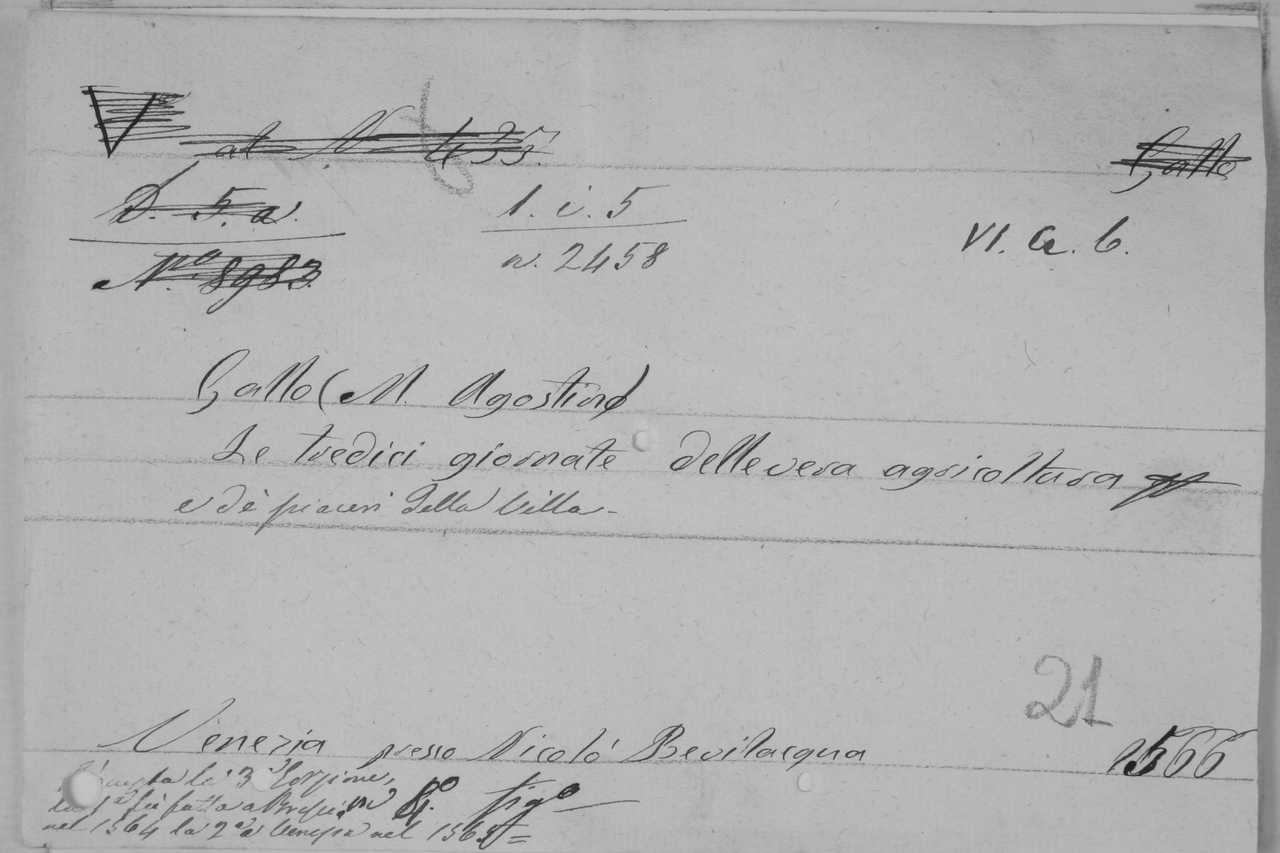 V al N 435.
Gallo
D. 5. a.
1. i. 5
VI. a. 6.
N.º 8983
n. 2458
Gallo (M. Agostino)
Le tredici giornate della vera agricoltura
e de' piaceri della Villa -
21
Venezia presso Nicolò Bevilacqua 1566
la 3ª edizione,
la 1ª fù fatta a Brescia in 8.º fig.º
nel 1564 la 2ª a Venezia nel 1565 =